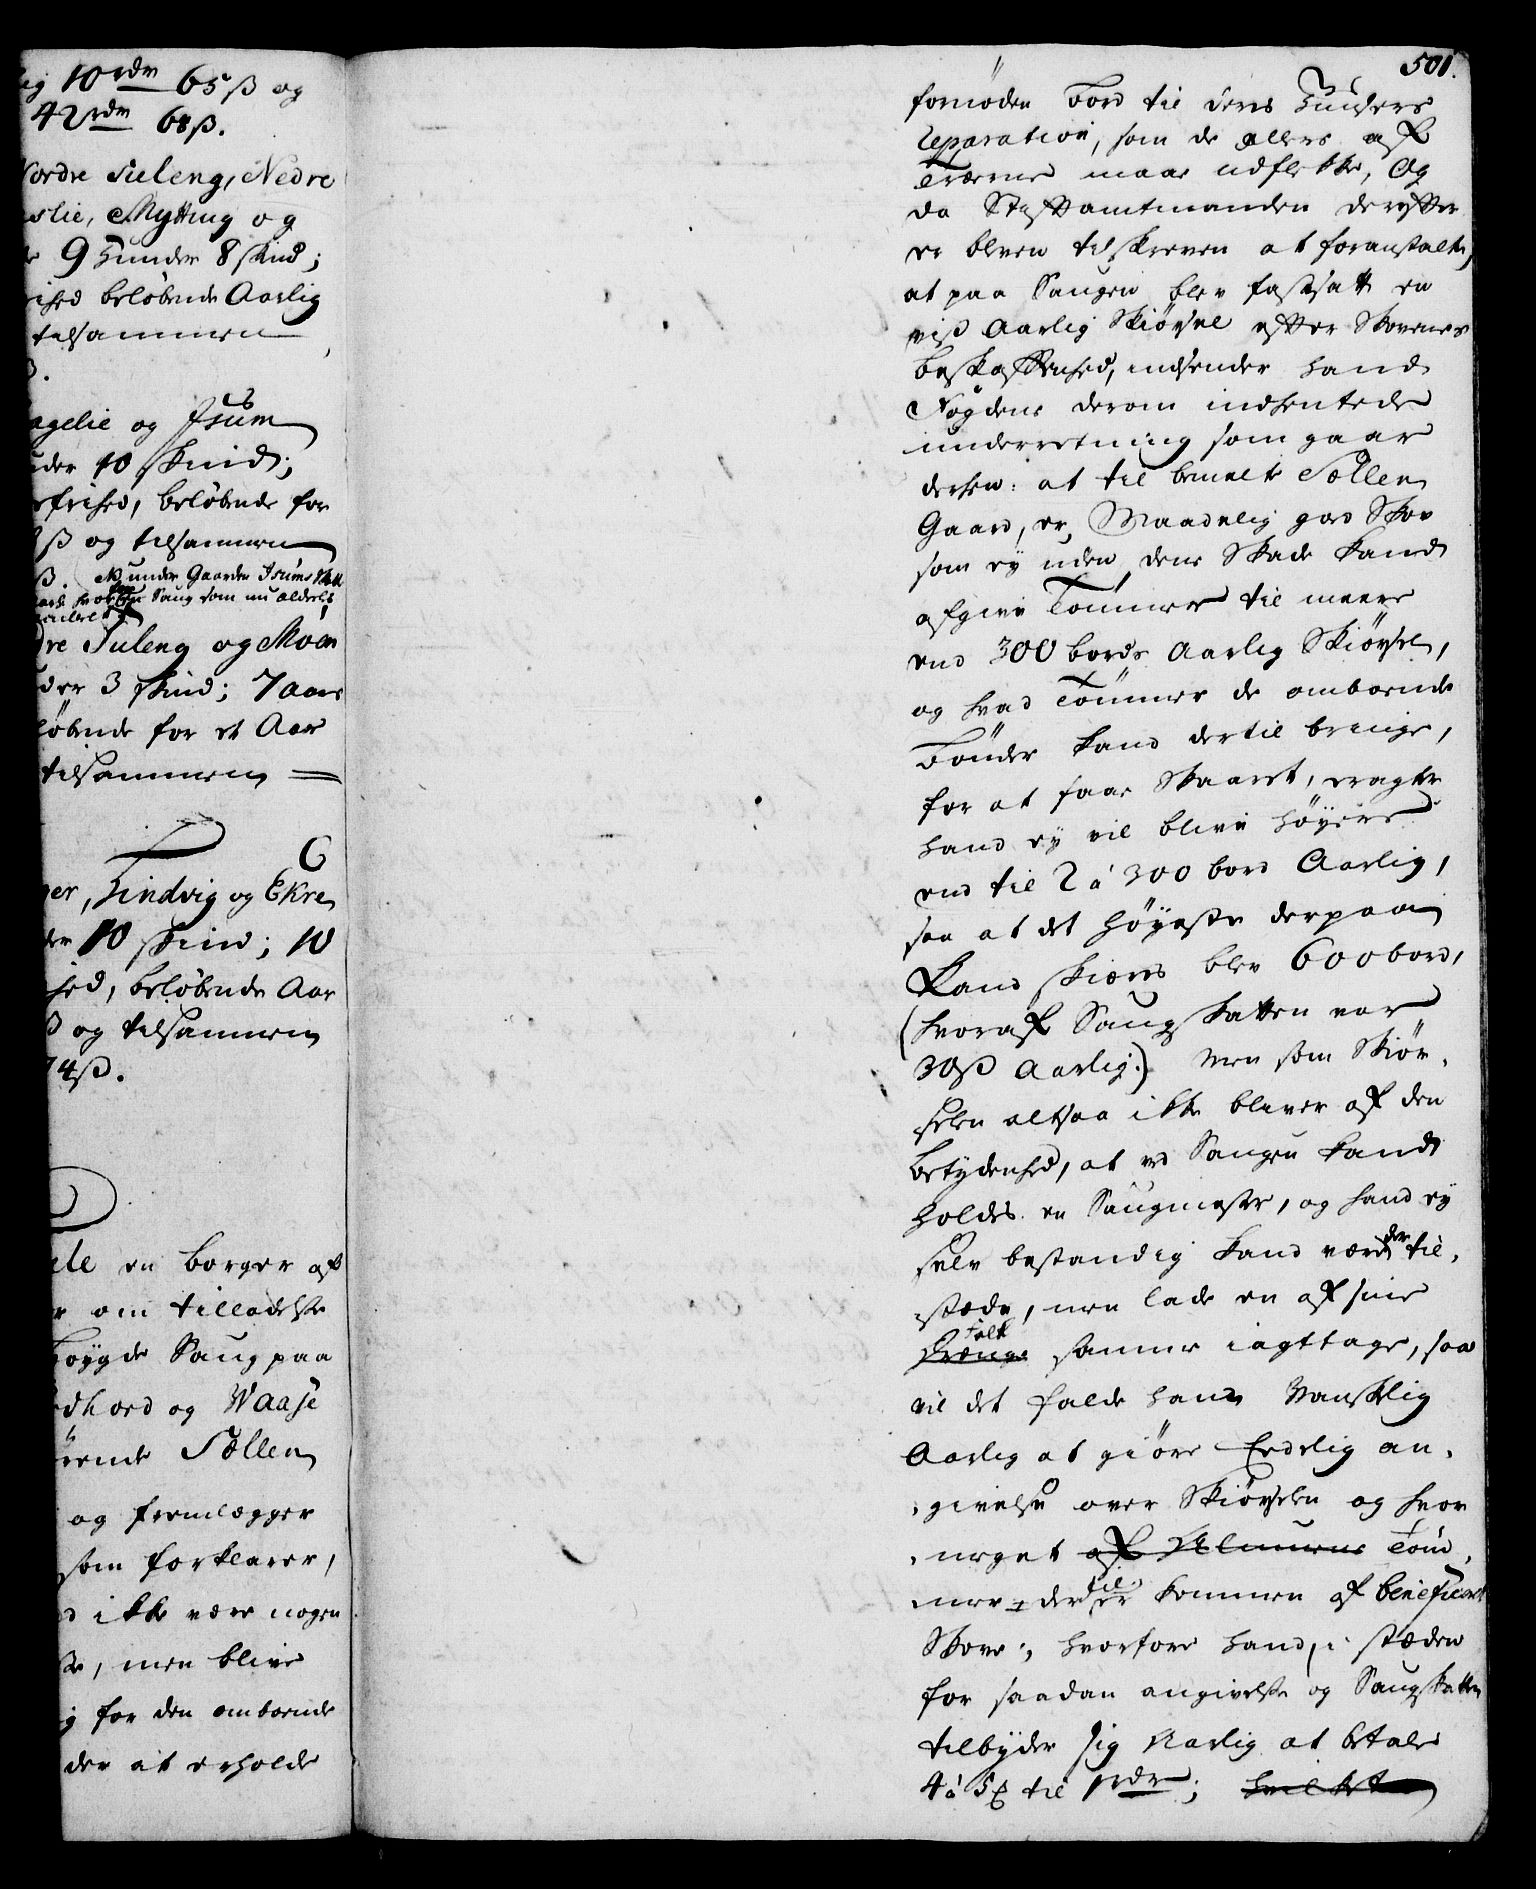 ig 10 rdr 65 ß og
42 rdr 68 ß.
Nordre Suleng, Nedre
slie, Mytting og
9 Hunder 8 skind;
rihed beløbende Aarlig
tilsammen
agelie og Isum
nder 10 skind;
frihed, beløbende for
ß og tilsammen
ß. NB under Gaarden Isums
Saug som nu aldeeles
dre Suleng og Moen
der 3 skind; 7 aars
løbende for et Aar
tilsammen
C
ger, Lindvig og Ekre
der 10 skind; 10
hed, beløbende Aar
ß og tilsammen
74 ß.
D
ele en borger af
om tilladelse
bøygde Saug paa
og Waase
rende Sollen
og fremlægger
som forklarer,
ikke være nogen
men blive
for den omboende
der at erholde
501.
fornøden bord til deres Huusers
reparation, som de ellers af
Træerne maae udflekke, Og
da Stiftamtmanden derefter
er bleven tilskreven at foranstalte,
at paa Saugen blev fastsatt en
viß Aarlig Skiørsel efter Skovenes
beskaffenhed, indsender hand
Fogdens derom indhentede
underretning som gaar
derhen: at til bemelte Sollen
Gaard, er Maadelig god Skov
som ey uden dens Skade kand
afgive Tømmer til meere
end 300 bords Aarlig Skiørsel,
og hvad Tømmer de omboende
Bønder kand dertil bringe,
for at faae Skaaret, eragter
hand ey vil blive høyere
end til 2 á 300 bord Aarlig,
saa at det høyeste derpaa
kand skiæres blev 600 bord,
(hvoraf Saugskatten var
30 ß Aarlig.) Men som Skiør-
selen altsaa ikke bliver af den
betydenhed, at ved Saugen kand
holdes en Saugmester, og hand ey
selv bestandig kand være der til-
stæde, men lade en af sine
Folk
Drænge samme iagttage, saa
vil det falde ham Vanskelig
Aarlig at giøre Eedelig an-
givelse over Skiørselen og hvor
meget af Tøm-
mer der til er kommen af beneficeret
Skove, hvorfore hand, i stæden
for saadan angivelse og Saugskatten
tilbyder sig Aarlig at betale
4 á 5 til 1 rdr; hvilket